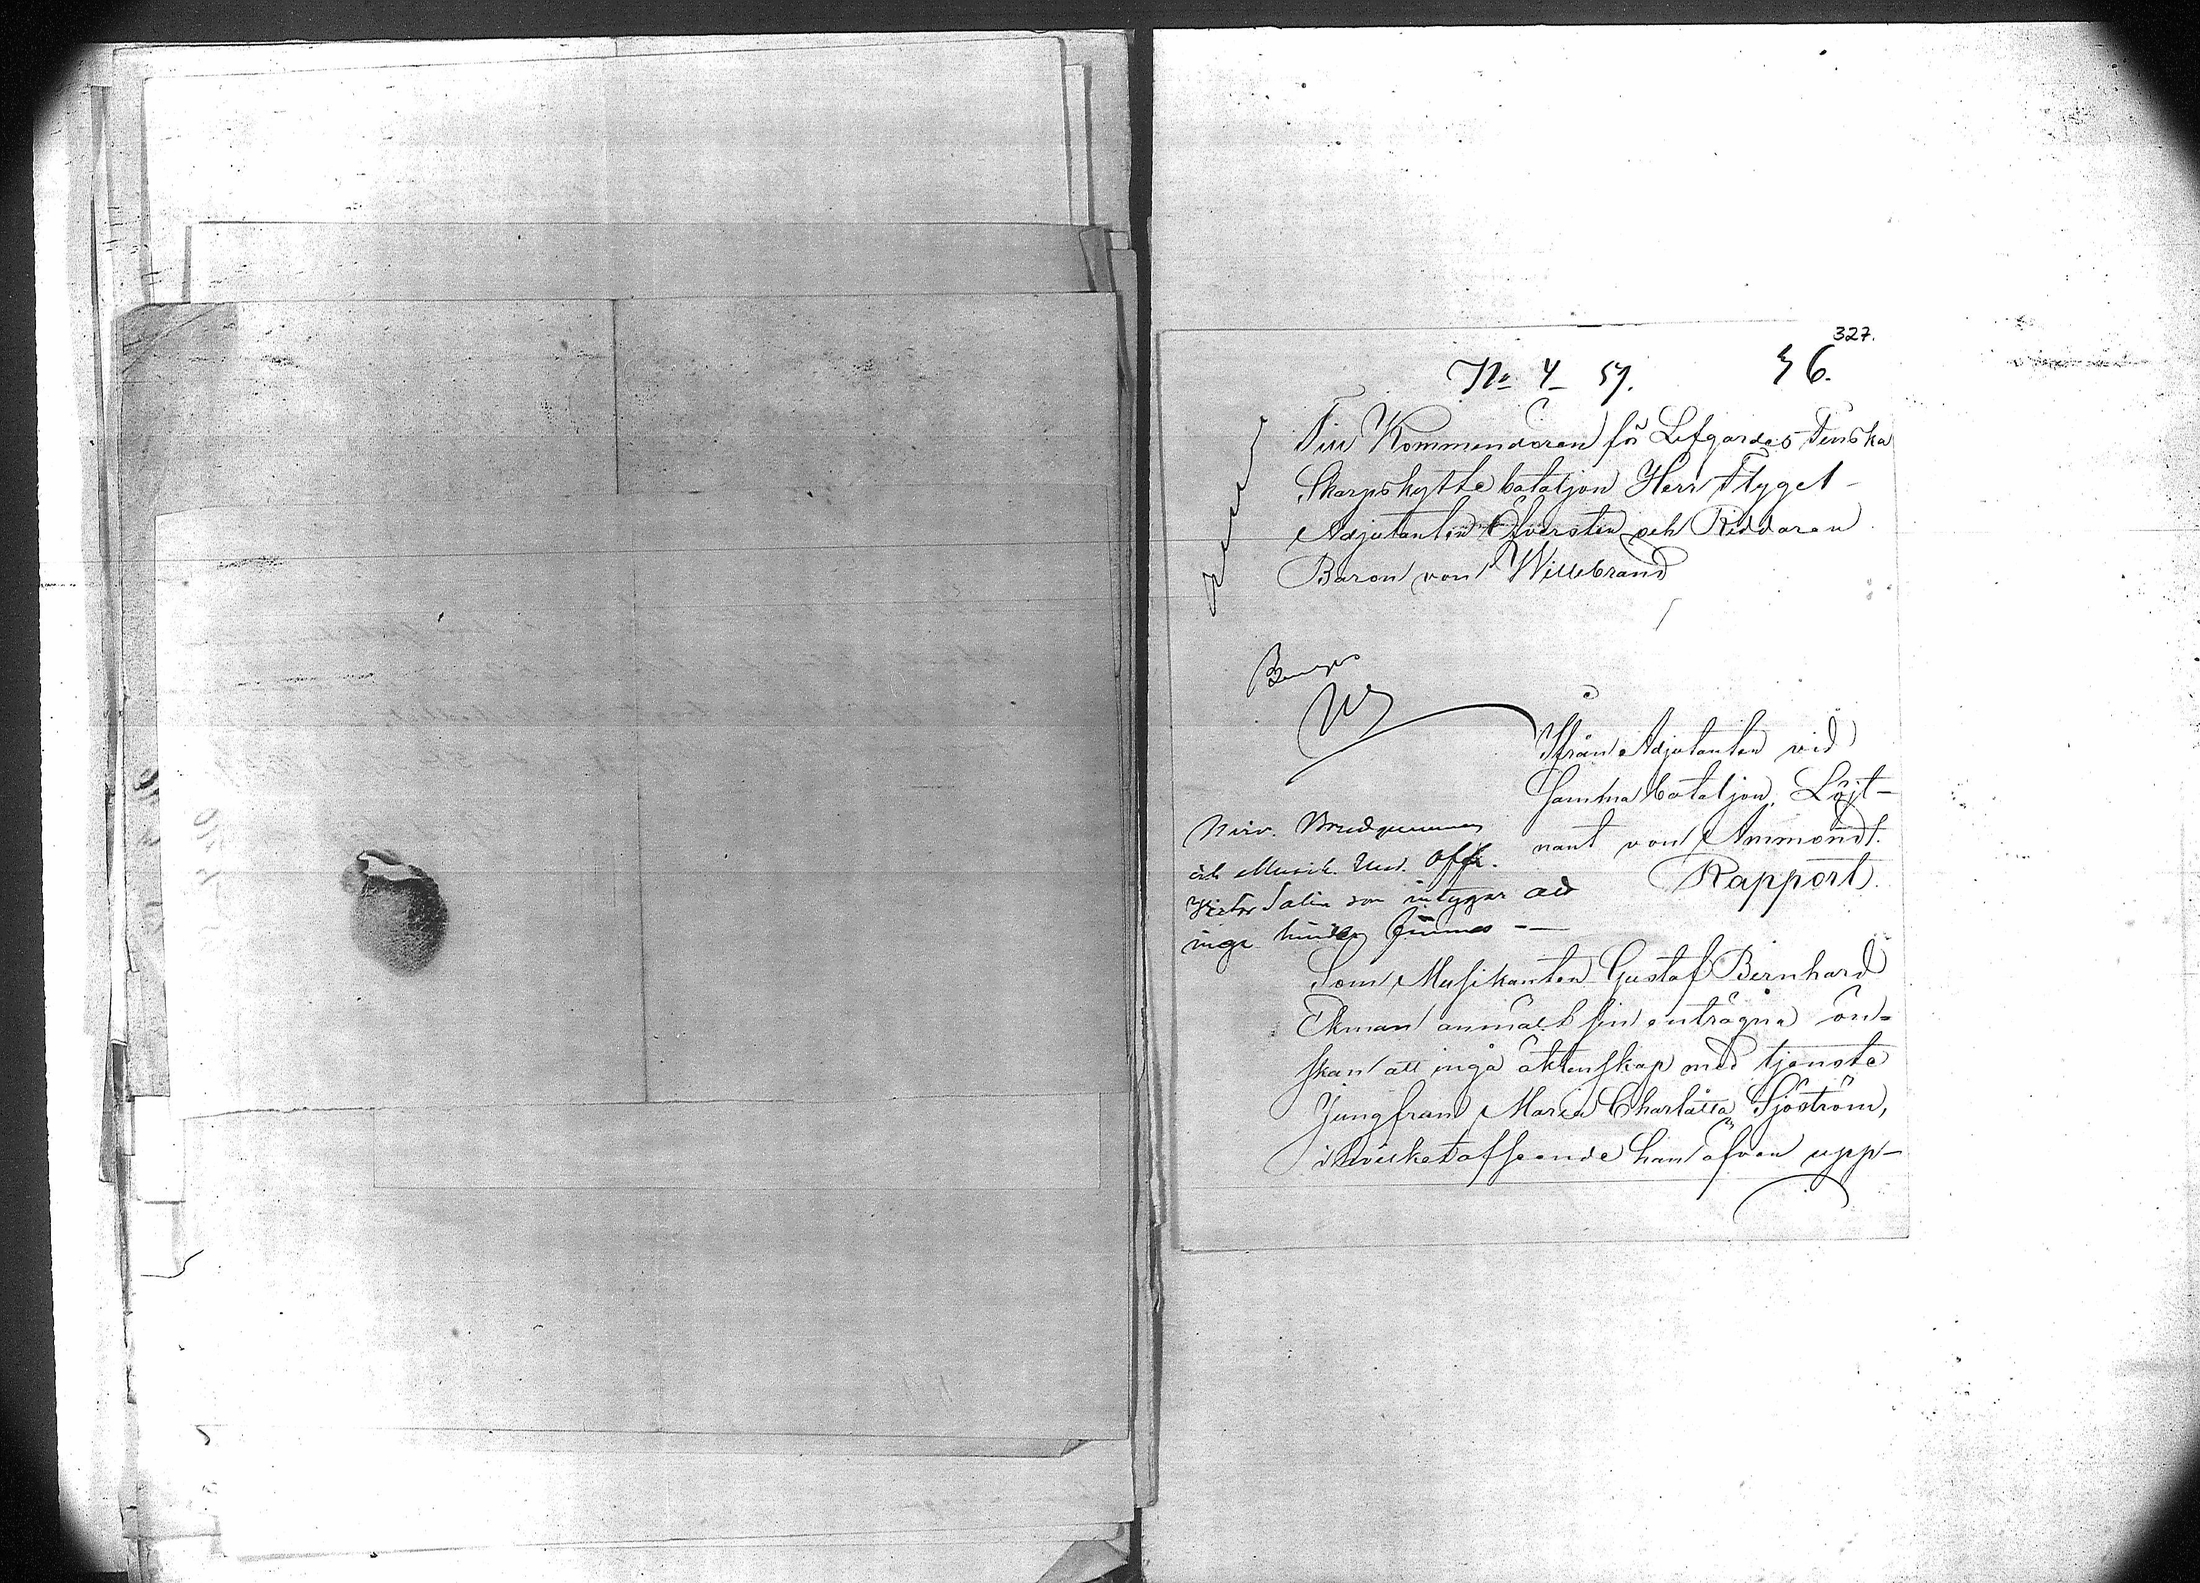 327.
No 4 57. 36.
Till Kommendören för Lifgardes Finska
Skarpskytte bataljon Herr Flygel-
Adjutanten Öfversten och Riddaren
Baron von Willebrand
Ifrån Adjutanten vid
samma bataljon, Löjt-
nant von Ammondt.
Rapport.
närv. Brudgummen
och Musik. Und. Off.
Victor Salin som intygar att
inga hinder finnes -
Som Musikanten Gustaf Bernhard
Ekman anmält sin enträgna ön-
skan att ingå äktenskap med tjenste
Jungfrun Maria Charlotta Sjöström,
i hvilket afseende han äfven upp-